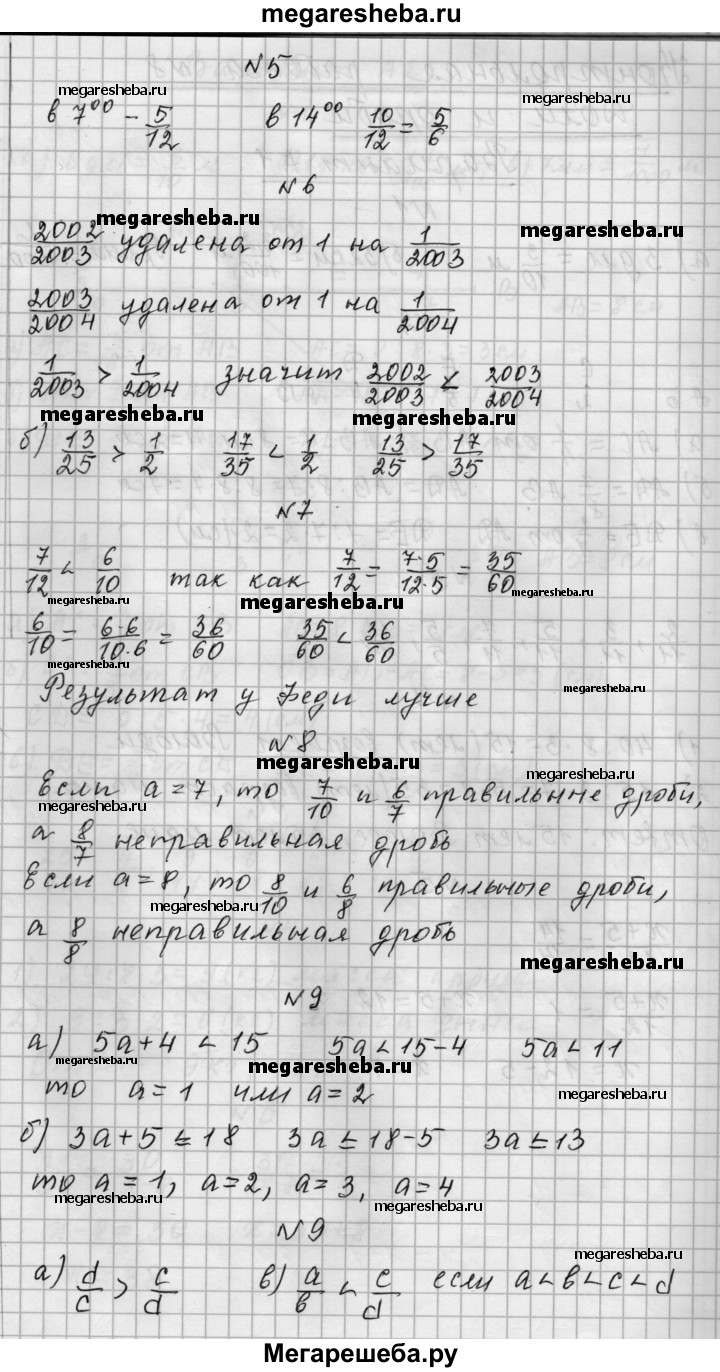 megaresheba.ru
N5
megaresheba.ru megaresheba.ru
в 7⁰⁰ – 5/12 в 14⁰⁰ 10/12 = 5/6
N6
megaresheba.ru megaresheba.ru
2002/2003 удалена от 1 на 1/2003
2003/2004 удалена от 1 на 1/2004
1/2003 > 1/2004 значит 2002/2003 < 2003/2004
megaresheba.ru megaresheba.ru
б) 13/25 > 1/2 17/35 < 1/2 13/25 > 17/35
N7
7/12 < 6/10 так как 7/12 = 7·5/12·5 = 35/60
megaresheba.ru megaresheba.ru megaresheba.ru
6/10 = 6·6/10·6 = 36/60 35/60 < 36/60
megaresheba.ru
Результат у Феди лучше megaresheba.ru
N8
megaresheba.ru megaresheba.ru
Если a=7, то 7/10 и 6/7 правильнне дроби,
megaresheba.ru
а 8/7 неправильная дробь
Если a=8, то 8/10 и 6/8 правильные дроби,
megaresheba.ru
а 8/8 неправильная дробь
megaresheba.ru
N9
а) 5a+4 < 15 5a < 15-4 5a < 11
megaresheba.ru megaresheba.ru
то a=1 или a=2 megaresheba.ru
б) 3a+5 ≤ 18 3a ≤ 18-5 3a ≤ 13
то a=1, a=2, a=3, a=4
megaresheba.ru megaresheba.ru
N9
megaresheba.ru
а) d/c > c/d в) a/b < c/d если a<b<c<d
Мегарешеба.ру